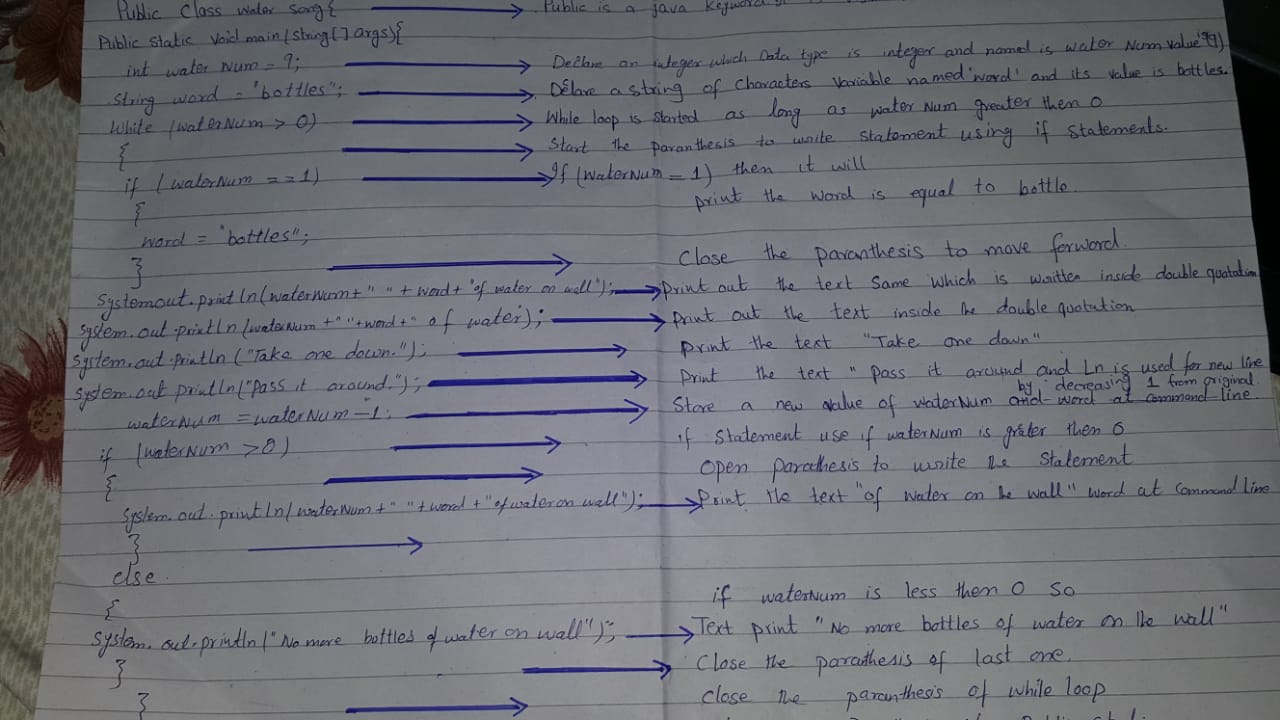 Public Class Water Song{ → Public is a java keyword
Public static void main(String[] args){
int waterNum = 9; → Declare an integer which Data type is integer and named is water Num value '99)
String word = "bottles"; → Delare a string of Characters variable named 'word' and its value is bottles.
While (waterNum > 0) → While loop is started as long as water Num greater then 0
{ → Start the paranthesis to write statement using if statements.
if (waterNum == 1) → If (WaterNum = 1) then it will
{ print the word is equal to bottle.
word = "bottles";
} → Close the paranthesis to move forword.
Systemout.println(waterNum+" "+word+"of water on wall"); → Print out the text same which is written inside double quotation
System.out.println(waterNum+" "+word+" of water); → Print out the text inside the double quotation
System.out.println("Take one down."); → Print the text "Take one down"
System.out println("Pass it around."); → Print the text " pass it around and Ln is used for new line
by decreasing 1 from original
waterNum = waterNum-1; → Store a new value of waterNum and word at command line
if (waterNum >0) → if statement use if waterNum is grater then 0
{ → Open parathesis to write the statement
System.out.println(waterNum+" "+word+"of water on wall"); → Print the text "of water on the wall" word at command line
} →
else
{ if waterNum is less then 0 so
System.out.println("No more bottles of water on wall"); → Text print "No more bottles of water on the wall"
} → Close the parathesis of last one.
} → Close the paranthesis of while loop